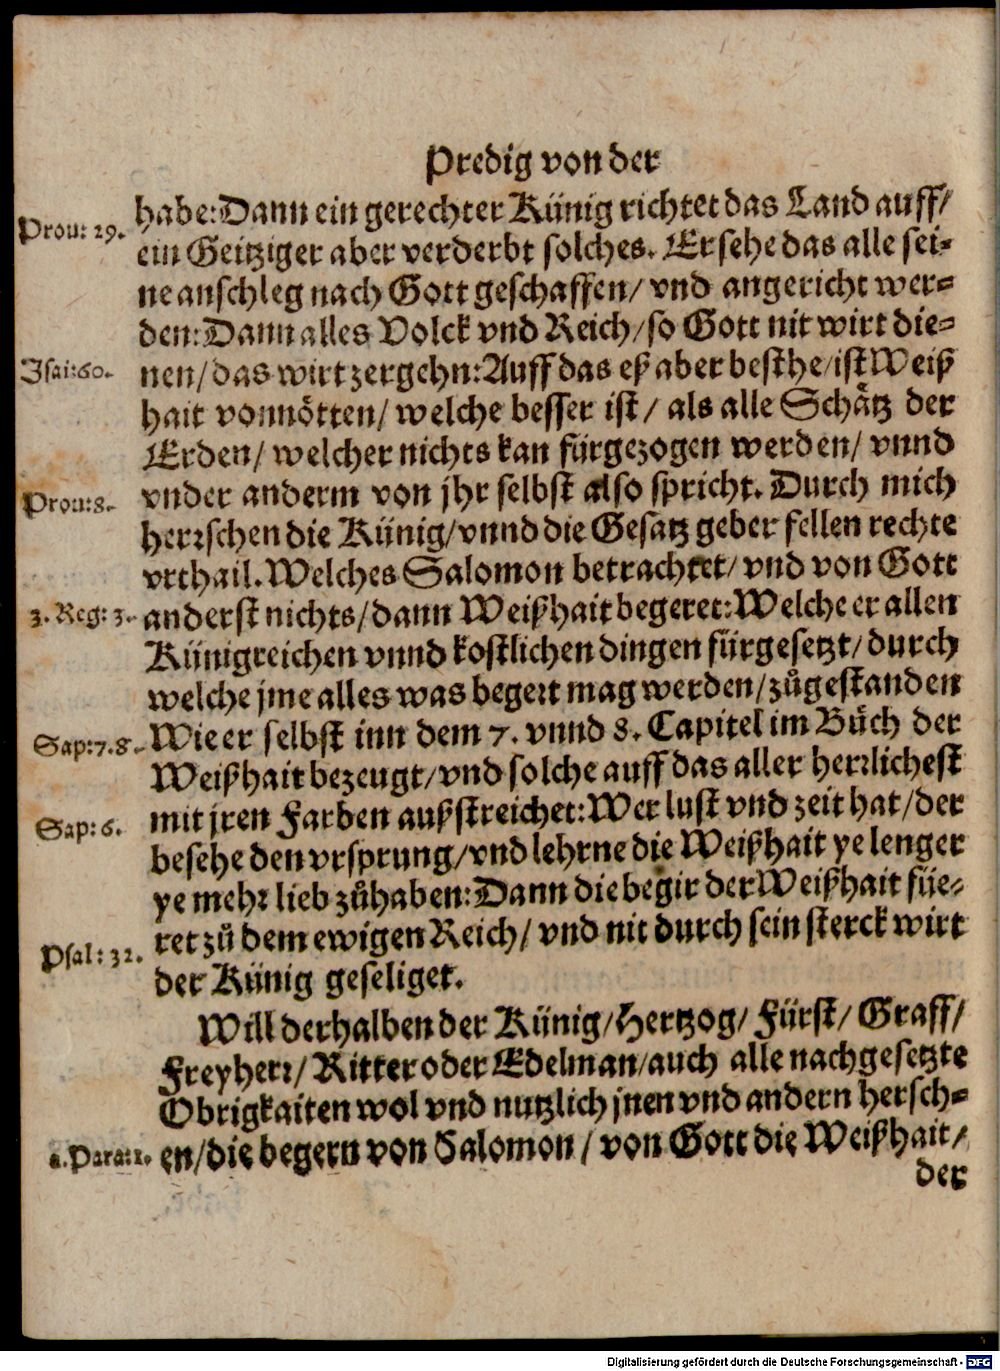 Predig von der
habe: Dann ein gerechter Künig richtet das Land auff/
Prou: 29.
ein Geitziger aber verderbt solches. Er sehe das alle sei-
ne anschleg nach Gott geschaffen/ vnd angericht wer-
den: Dann alles Volck vnd Reich/ so Gott nit wirt die-
Isai: 60.
nen/ das wirt zergehn: Auff das eß aber besthe/ ist Weiß
hait vonnötten/ welche besser ist/ als alle Schätz der
Erden/ welcher nichts kan fürgezogen werden/ vnnd
Prou: 8.
vnder anderm von jhr selbst also spricht. Durch mich
herrschen die Künig/ vnnd die Gesatz geber fellen rechte
vrthail. Welches Salomon betrachtet/ vnd von Gott
3. Reg: 3.
anderst nichts/ dann Weißhait begeret: Welche er allen
Künigreichen vnnd kostlichen dingen fürgesetzt/ durch
welche jme alles was begert mag werden/ zůgestanden
Sap: 7. 8.
Wie er selbst inn dem 7. vnnd 8. Capitel im Bůch der
Weißhait bezeugt/ vnd solche auff das aller herrlichest
Sap: 6.
mit jren Farben außstreichet: Wer lust vnd zeit hat/ der
besehe den vrsprung/ vnd lehrne die Weißhait ye lenger
ye mehr lieb zůhaben: Dann die begir der Weißhait füe-
Psal: 32.
ret zů dem ewigen Reich/ vnd nit durch sein sterck wirt
der Künig geseliget.
Will derhalben der Künig/ Hertzog/ Fürst/ Graff/
Freyherr/ Ritter oder Edelman/ auch alle nachgesetzte
Obrigkaiten wol vnd nutzlich jnen vnd andern hersch-
2. Para: 1.
en/ die begern von Salomon/ von Gott die Weißhait/
der
Digitalisierung gefördert durch die Deutsche Forschungsgemeinschaft - DFG